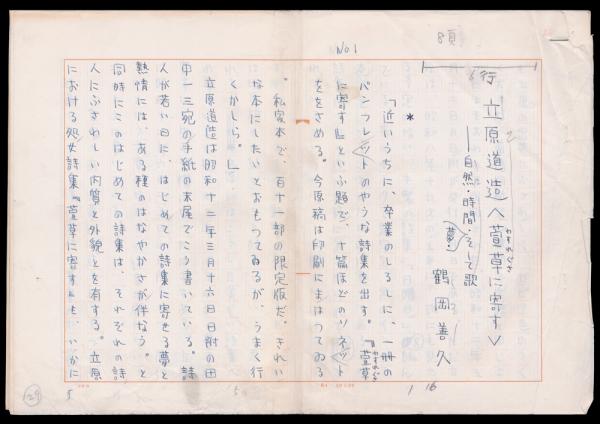 8頁
No 1
6行
立原道造へ萱草に寄す∨
わすれぐさ
――自然・時間・そして歌
夢・
鶴岡善久
*
「近いうちに、卒業のしるしに、一冊の
パンフレットのやうな詩集を出す。『萱草
わすれぐさ
に寄す』といふ題で、十篇ほどのソネット
ををさめる。今原稿は印刷にまはつてゐる
。私家本で、百十一部の限定版だ。きれい
な本にしたいとおもつてゐるが、うまく行
くかしら。」
立原道造は昭和十二年三月十六日日附の田
中一三宛の手紙の末尾でこう書いている。詩
人が若い日に、はじめての詩集に寄せる夢と
熱情には、ある種のはなやかさが伴なう。と
同時にこのはじめての詩集は、それぞれの詩
人にふさわしい内質と外貌とを有する。立原
における処女詩集『萱草に寄す』も、いかに
1
16
5
29